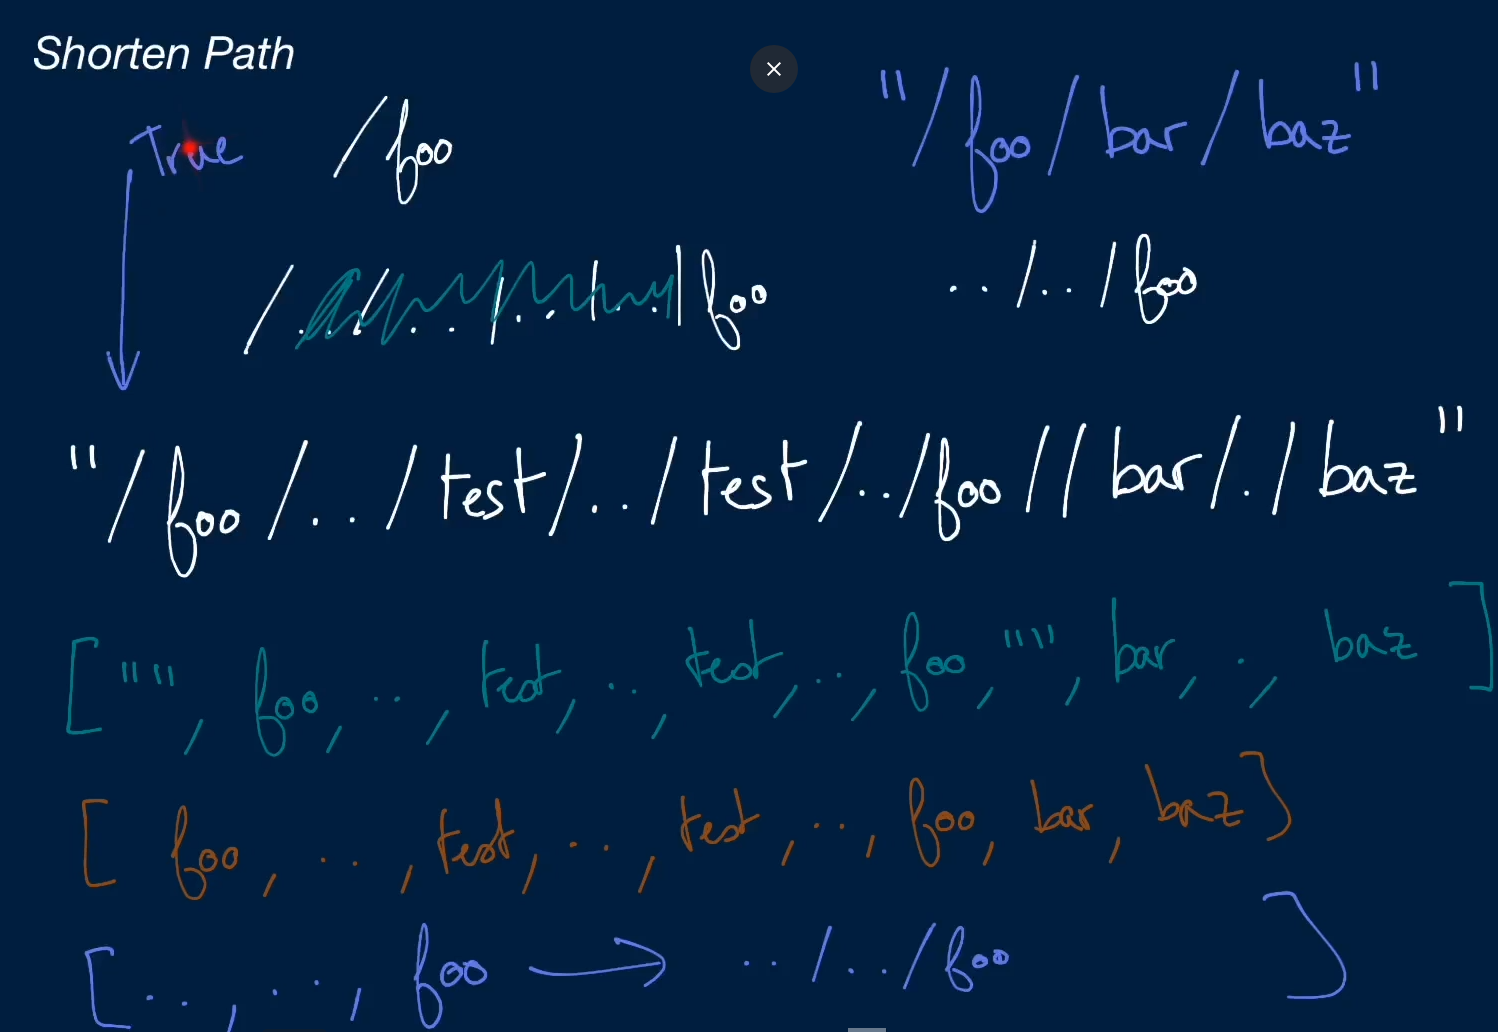 Shorten Path
True /foo "/foo/bar/baz"
/../../../../foo ../../foo
"/foo/../test/../test/../foo//bar/./baz"
["", foo, .., test, .., test, .., foo, "", bar, ., baz]
[foo, .., test, .., test, .., foo, bar, baz]
[.., .., foo → ../../foo ]